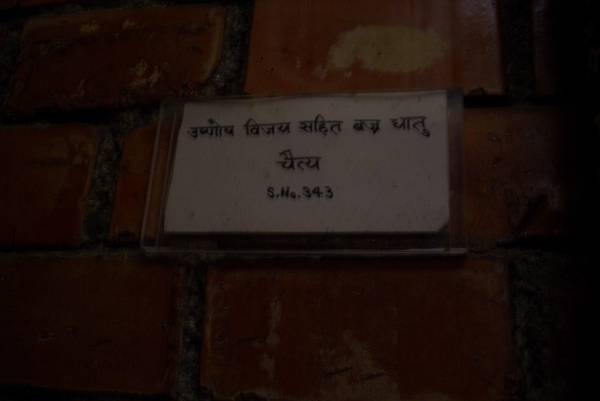 उष्णोष विजय सहित बज्र धातु
चैत्य
S.No.343